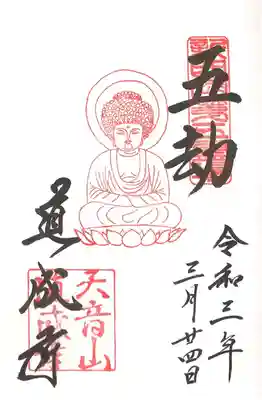 五劫
令和三年
三月廿四日
道成寺
天音山
道成寺